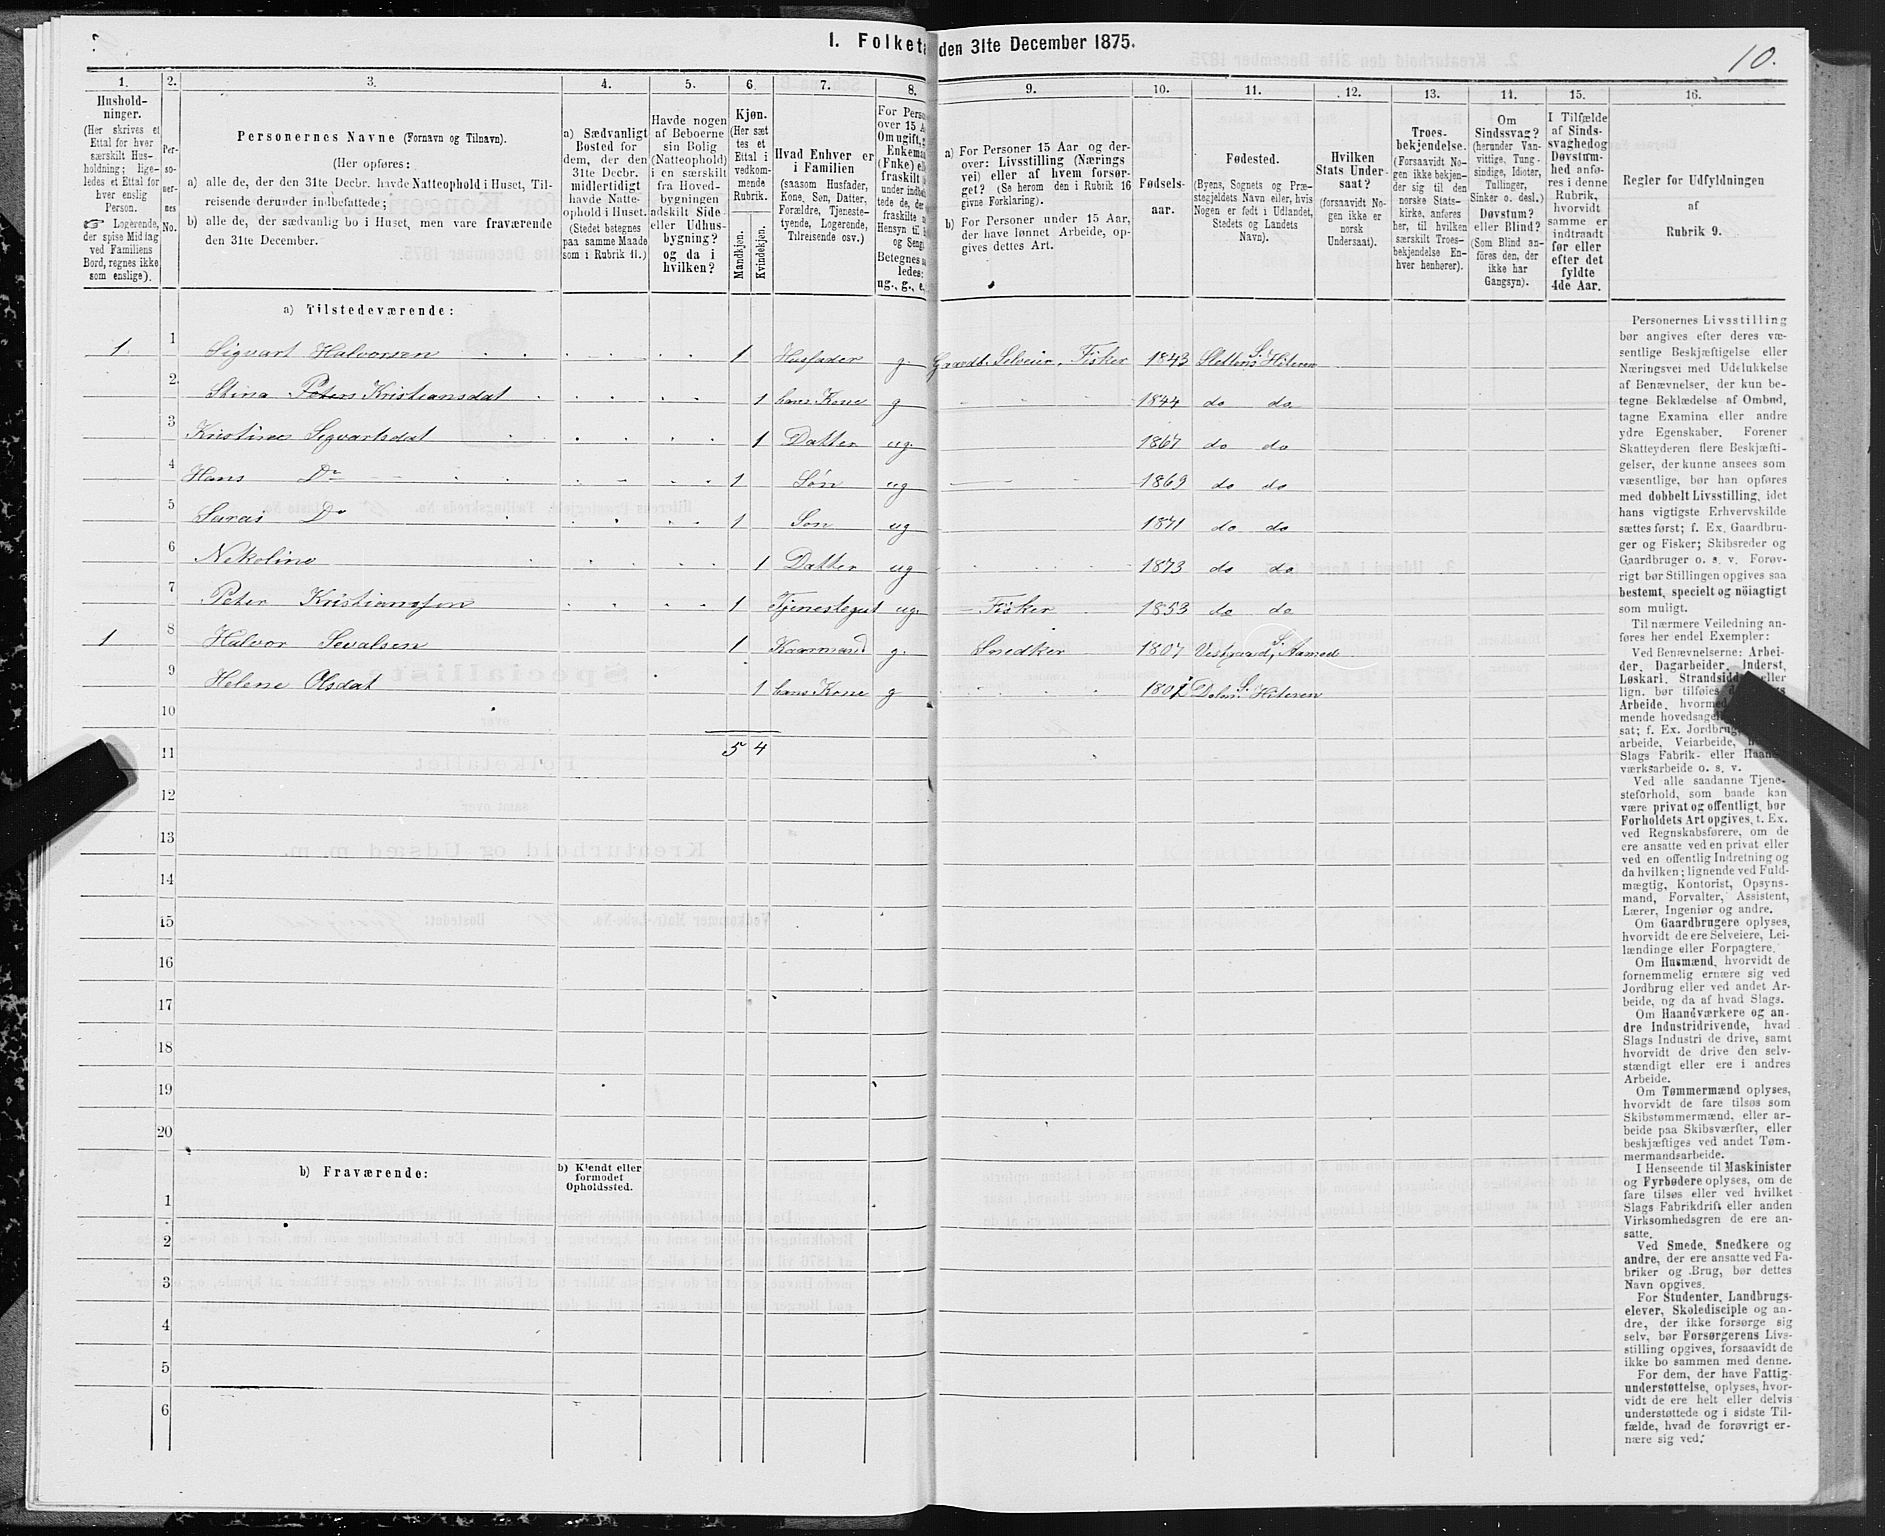 1. Folketa den 31te December 1875.
10.
1. 2. 3. 4. 5. 6. 7. 8. 9. 10. 11. 12. 13. 14. 15. 16.
Hushold-
ninger.
(Her skrives et
Ettal for hver
særskilt Hus-
holdning; lige-
ledes et Ettal for
hver enslig
Person.
☞ Logerende,
der spise Middag
ved Familiens
Bord, regnes ikke
som enslige).
Per-
so-
ner-
nes
No.
Personernes Navne (Fornavn og Tilnavn).
(Her opføres:
a) alle de, der den 31te Decbr. havde Natteophold i Huset, Til-
reisende derunder indbefattede;
b) alle de, der sædvanlig bo i Huset, men vare fraværende
den 31te December.
a) Sædvanligt
Bosted for
dem, der den
31te Decbr.
midlertidigt
havde Natte-
ophold i Huset.
(Stedet betegnes
paa samme Maade
som i Rubrik 11.)
Havde nogen
af Beboerne
sin Bolig
(Natteophold)
i en særskilt
fra Hoved-
bygningen
adskilt Side-
eller Udhus-
bygning?
og da i
hvilken?
Kjøn.
(Her sæt-
tes et
Ettal i
vedkom-
mende
Rubrik.
Mandkjøn.
Kvindekjøn.
Hvad Enhver er
i Familien
(saasom Husfader,
Kone, Søn, Datter,
Forældre, Tjeneste-
tyende, Logerende,
Tilreisende osv.)
For Perso
over 15 A
Om ugift, g
Enkeman
(Enke) ell
fraskilt
under indbe
tede de, der
fraskilte
Hensyn til
og Seng
Betegnes s
ledes:
ug., g., e.,
a) For Personer 15 Aar og der-
over: Livsstilling (Nærings
vei) eller af hvem forsør-
get? (Se herom den i Rubrik 16
givne Forklaring).
b) For Personer under 15 Aar,
der have lønnet Arbeide, op-
gives dettes Art.
Fødsels-
aar.
Fødested.
(Byens, Sognets og Præ-
stegjeldets Navn eller, hvis
Nogen er født i Udlandet,
Stedets og Landets
Navn).
Hvilken
Stats Under-
saat?
(forsaavidt No-
gen ikke er
norsk
Undersaat).
Troes-
bekjendelse.
(Forsaavidt No-
gen ikke bekjen-
der sig til den
norske Stats-
kirke, anføres
her, til hvilken
særskilt Troes-
bekjendelse En-
hver henhører).
Om
Sindssvag?
(herunder Van-
vittige, Tung-
sindige, Idioter,
Tullinger,
Sinker o. desl.)
Døvstum?
eller Blind?
(Som Blind an-
føres den, der
ikke har
Gangsyn).
I Tilfælde
af Sinds-
svaghed og
Døvstum-
hed anfø-
res i denne
Rubrik,
hvorvidt
samme er
indtraadt
før eller
efter det
fyldte
4de Aar.
Regler for Udfyldningen
af
Rubrik 9.
a) Tilstedeværende:
1. 1 Sigvart Halvorsen 1 Husfader g. Gaardb. Selveier, Fisker 1843 Slettens S. Hiteren
2. Stina Peters Kristiansdat 1 hans Kone g 1844 do do
3 Kristine Sigvartsdat 1 Datter ug. 1867 do do
4 Hans Do 1 Søn ug 1869 do do
5 Do 1 Søn ug 1871 do do
6 Nekoline 1 Datter ug 1873 do do
7 Peter Kristianssen 1 Tjenestegut ug. Fisker 1853 do do
1 8 Halvor Sevalsen 1 Kaarmand g. Snedker 1807 S.
9 Helene Olsdat 1 hans Kone g S. Hiteren
10
11 5 4
12
13
14
15
16
17
18
19
20
b) Fraværende:
b) Kjendt eller
formodet
Opholdssted.
1
2
3
4
5
6
Personernes Livsstilling
bør angives efter deres væ-
sentlige Beskjæftigelse eller
Næringsvei med Udelukkelse
af Benævnelser, der kun be-
tegne Beklædelse af Ombud,
tagne Examina eller andre
ydre Egenskaber. Forener
Skatteyderen flere Beskjæfti-
gelser, der kunne ansees som
væsentlige, bør han opføres
med dobbelt Livsstilling, idet
hans vigtigste Erhvervskilde
sættes først; f. Ex. Gaardbru-
ger og Fisker; Skibsreder og
Gaardbruger o. s. v. Forøv-
rigt bør Stillingen opgives saa
bestemt, specielt og nöiagtigt
som muligt.
Til nærmere Veiledning an-
føres her endel Exempler:
Ved Benævnelserne: Arbei-
der, Dagarbeider, Inderst,
Løskarl, Strandsidd eller
lign. bør tilføies
Arbeide, hvormed
mende hovedsagel
sat; f. Ex. Jordbrug
arbeide, Veiarbeide,
Slags Fabrik- eller Haand
værksarbeide o. s. v.
Ved alle saadanne Tjene-
steforhold, som baade kan
være privat og offentligt, bør
Forholdets Art opgives, t. Ex.
ved Regnskabsførere, om de
ere ansatte ved en privat eller
ved en offentlig Indretning og
da hvilken; lignende ved Fuld-
mægtig, Kontorist, Opsyns-
mand, Forvalter, Assistent,
Lærer, Ingeniør og andre.
Om Gaardbrugere oplyses,
hvorvidt de ere Selveiere, Lei-
lændinge eller Forpagtere.
Om Husmænd, hvorvidt de
fornemmelig ernære sig ved
Jordbrug eller ved andet Ar-
beide, og da af hvad Slags.
Om Haandværkere og an-
dre Industridrivende, hvad
Slags Industri de drive, samt
hvorvidt de drive den selv-
stændigt eller ere i andres
Arbeide.
Om Tømmermænd oplyses,
hvorvidt de fare tilsøs som
Skibstømmermænd, eller ar-
beide paa Skibsværfter, eller
beskjæftiges ved andet Tøm-
mermandsarbeide.
I Henseende til Maskinister
og Fyrbødere oplyses, om de
fare tilsøs eller ved hvilket
Slags Fabrikdrift eller anden
Virksomhedsgren de ere an-
satte.
Ved Smede, Snedkere og
andre, der ere ansatte ved Fa-
briker og Brug, bør dettes
Navn opgives.
For Studenter, Landbrugs-
elever, Skoledisciple og an-
dre, der ikke forsørge sig
selv, bør Forsørgerens Livs-
stilling opgives, forsaavidt de
ikke bo sammen med denne.
For dem, der have Fattig-
understøttelse, oplyses, hvor-
vidt de ere helt eller delvis
understøttede og i sidste Til-
fælde, hvad de forøvrigt er-
nære sig ved.